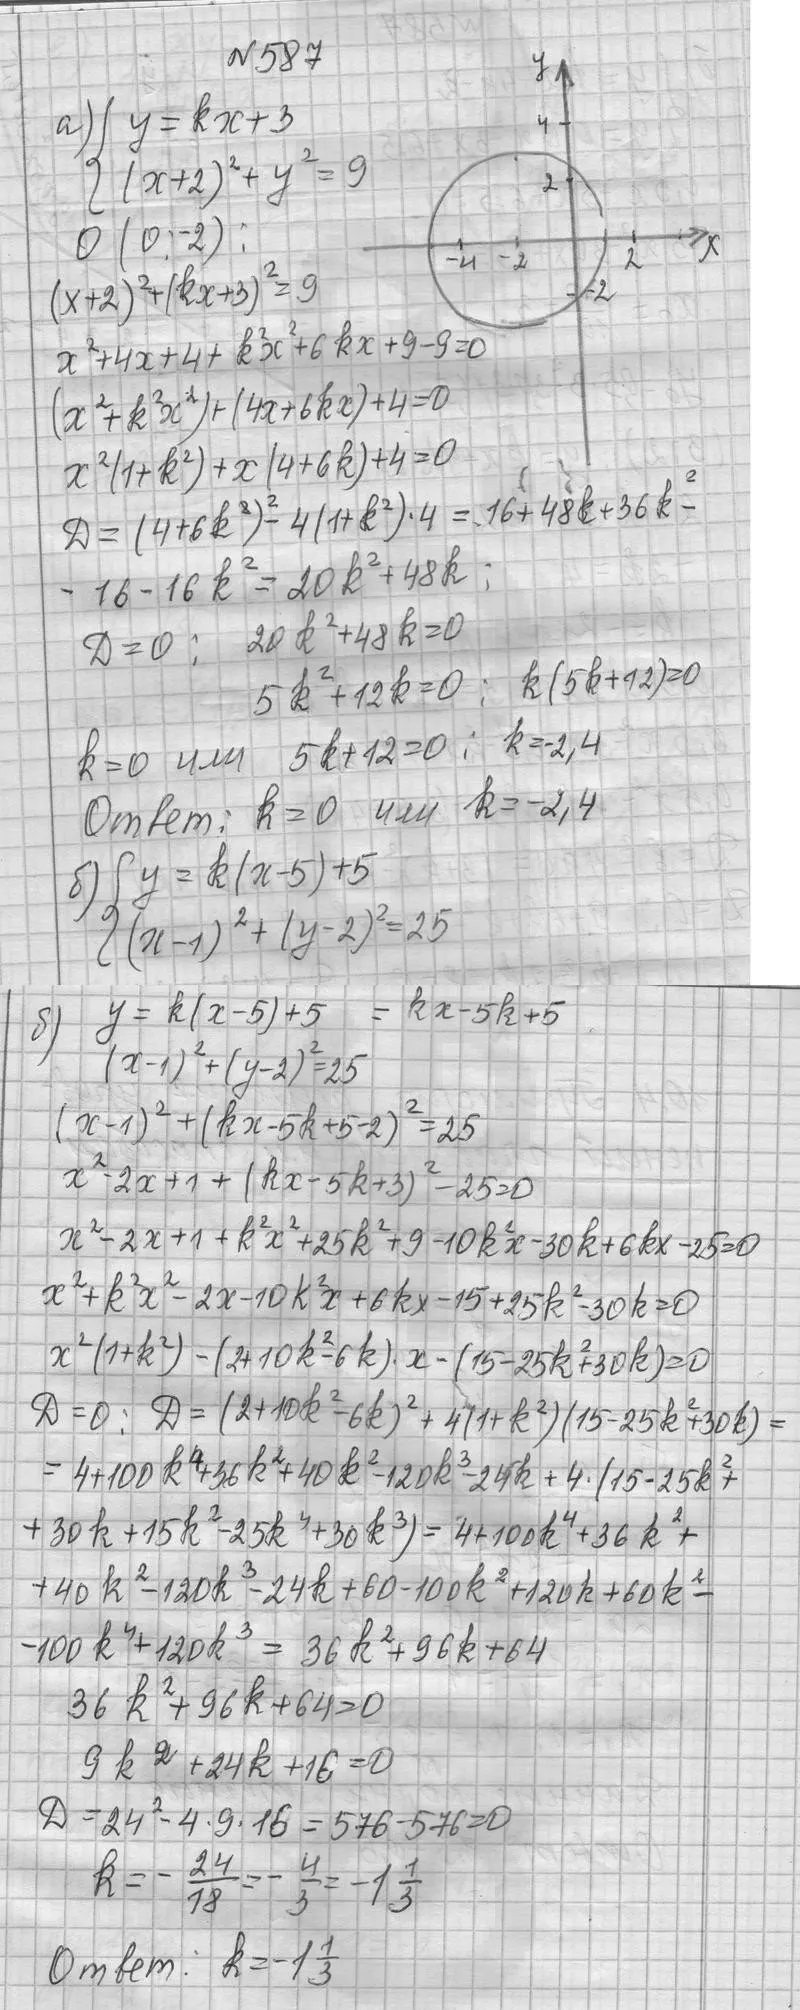 N587
а) { y = kx+3
(x+2)² + y² = 9
O (0; -2);
(x+2)²+(kx+3)²=9
x²+4x+4+k²x²+6kx+9-9=0
(x²+k²x²)+(4x+6kx)+4=0
x²(1+k²)+x(4+6k)+4=0
D = (4+6k²)²-4(1+k²)·4 = 16+48k+36k²-
- 16-16k² = 20k²+48k;
D=0; 20k²+48k=0
5k²+12k=0; k(5k+12)=0
k=0 или 5k+12=0; k=-2,4
Ответ: k=0 или k=-2,4
б) { y = k(x-5)+5
(x-1)²+(y-2)²=25
y
4
2
-4 -2 2 x
-2
б) y = k(x-5)+5 = kx-5k+5
(x-1)²+(y-2)²=25
(x-1)²+(kx-5k+5-2)²=25
x²-2x+1+(kx-5k+3)²-25=0
x²-2x+1+k²x²+25k²+9-10k²x-30k+6kx-25=0
x²+k²x²-2x-10k²x+6kx-15+25k²-30k=0
x²(1+k²)-(2+10k²-6k)·x-(15-25k²+30k)=0
D=0; D=(2+10k²-6k)²+4(1+k²)(15-25k²+30k)=
= 4+100k⁴+36k²+40k²-120k³-24k+4·(15-25k²+
+30k+15k²-25k⁴+30k³)=4+100k⁴+36k²+
+40k²-120k³-24k+60-100k²+120k+60k²-
-100k⁴+120k³ = 36k²+96k+64
36k²+96k+64=0
9k²+24k+16=0
D=24²-4·9·16=576-576=0
k=-24/18=-4/3=-1 1/3
Ответ: k=-1 1/3